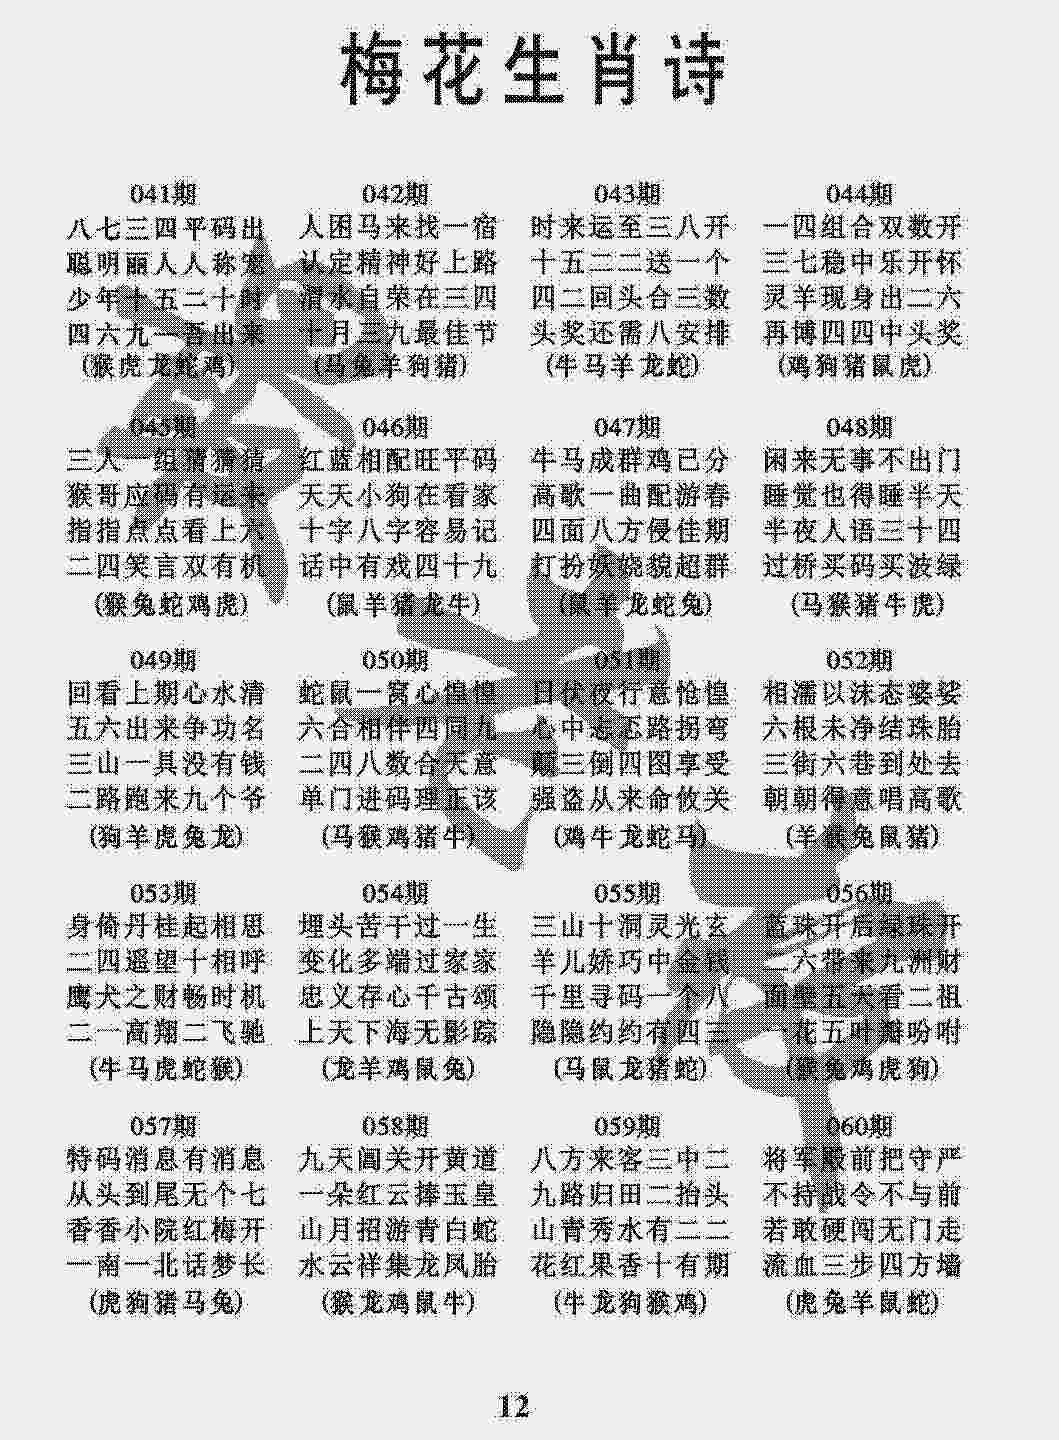 梅花生肖诗
041期
八七三四平码出
聪明丽人人称宠
少年十五二十时
四六九一吾出来
(猴虎龙蛇鸡)
042期
人困马来找一宿
认定精神好上路
渭水自荣在三四
十月三九最佳节
(马兔羊狗猪)
043期
时来运至三八开
十五二二送一个
四二回头合三数
头奖还需八安排
(牛马羊龙蛇)
044期
一四组合双数开
三七稳中乐开怀
灵羊现身出二六
再博四四中头奖
(鸡狗猪鼠虎)
045期
三人一组猜猜猜
猴哥应码有运来
指指点点看上六
二四笑言双有机
(猴兔蛇鸡虎)
046期
红蓝相配旺平码
天天小狗在看家
十字八字容易记
话中有戏四十九
(鼠羊猪龙牛)
047期
牛马成群鸡已分
高歌一曲配游春
四面八方侵佳期
打扮妖娆貌超群
(鼠羊龙蛇兔)
048期
闲来无事不出门
睡觉也得睡半天
半夜人语三十四
过桥买码买波绿
(马猴猪牛虎)
049期
回看上期心水清
五六出来争功名
三山一具没有钱
二路跑来九个爷
(狗羊虎兔龙)
050期
蛇鼠一窝心惶惶
六合相伴四同九
二四八数合天意
单门进码理正该
(马猴鸡猪牛)
051期
日伏夜行意怆惶
心中忐忑路拐弯
颠三倒四图享受
强盗从来命攸关
(鸡牛龙蛇马)
052期
相濡以沫态婆娑
六根未净结珠胎
三街六巷到处去
朝朝得意唱高歌
(羊猴兔鼠猪)
053期
身倚丹桂起相思
二四遥望十相呼
鹰犬之财畅时机
二一高翔二飞驰
(牛马虎蛇猴)
054期
埋头苦干过一生
变化多端过家家
忠义存心千古颂
上天下海无影踪
(龙羊鸡鼠兔)
055期
三山十洞灵光玄
羊儿娇巧中金钱
千里寻码一个八
隐隐约约有四三
(马鼠龙猪蛇)
056期
蓝珠开后绿珠开
二六带来九洲财
面壁五天看二祖
一花五叶瓣吩咐
(猴兔鸡虎狗)
057期
特码消息有消息
从头到尾无个七
香香小院红梅开
一南一北话梦长
(虎狗猪马兔)
058期
九天阊关开黄道
一朵红云捧玉皇
山月招游青白蛇
水云祥集龙凤胎
(猴龙鸡鼠牛)
059期
八方来客三中二
九路归田二抬头
山青秀水有二二
花红果香十有期
(牛龙狗猴鸡)
060期
将军殿前把守严
不持战令不与前
若敢硬闯无门走
流血三步四方墙
(虎兔羊鼠蛇)
12